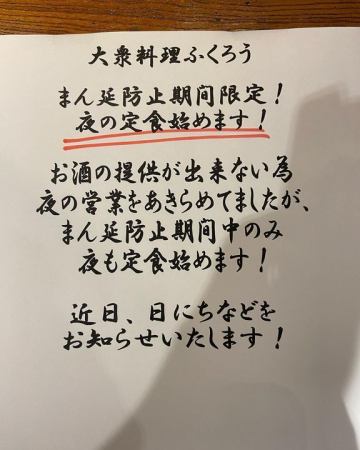 大衆料理ふくろう
まん延防止期間限定！
夜の定食始めます！
お酒の提供が出来ない為
夜の営業をあきらめてましたが、
まん延防止期間中のみ
夜も定食始めます！
近日、日にちなどを
お知らせいたします！